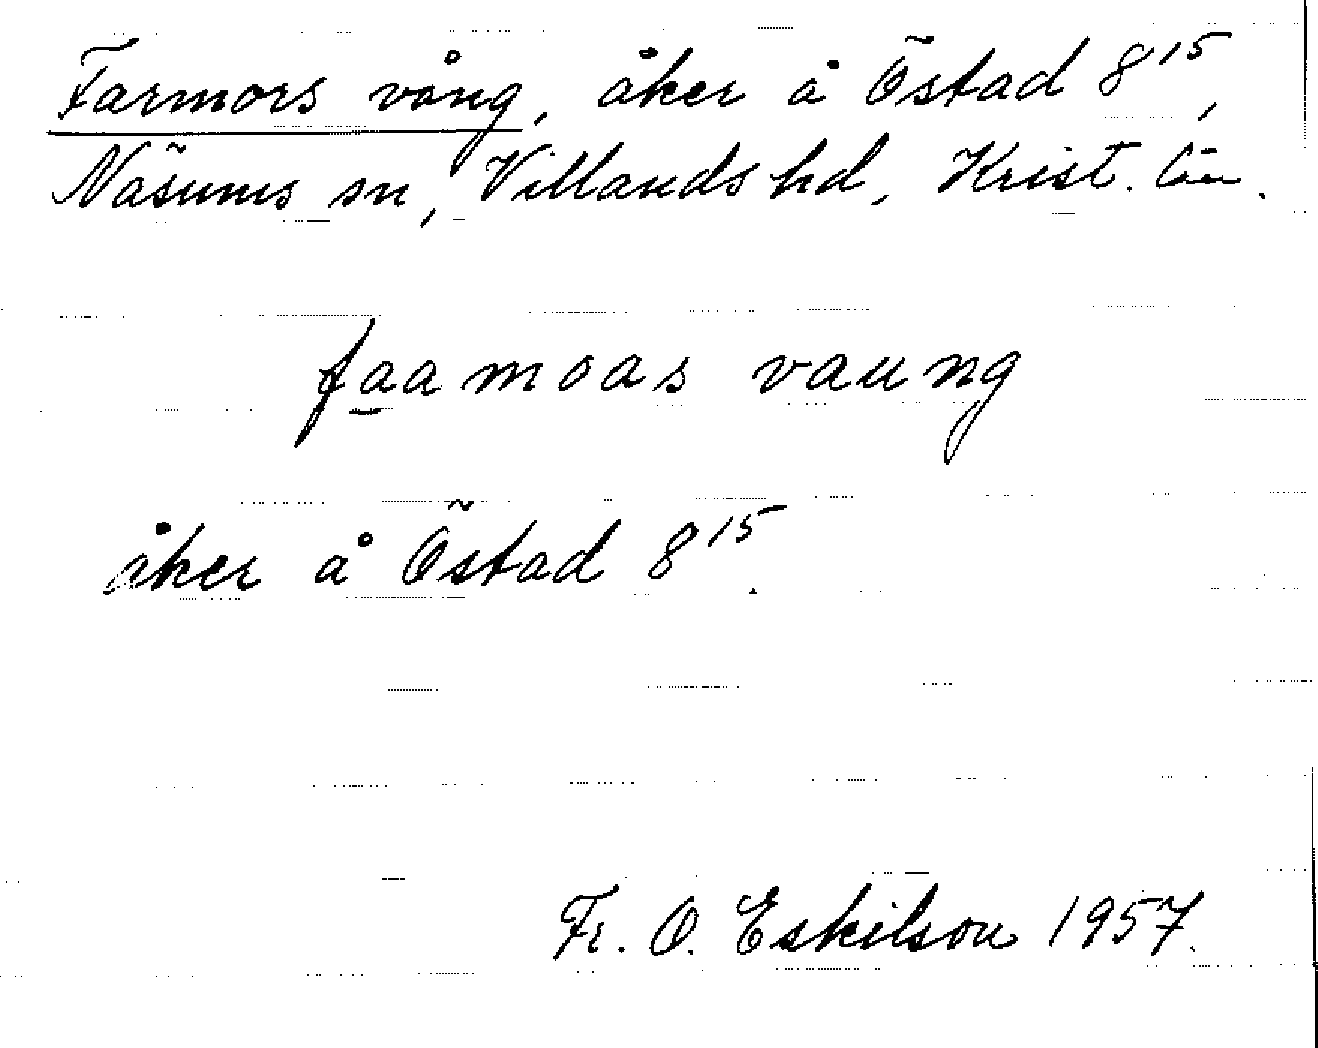 Farmors vång, åker å Östad 8¹⁵,
Näsums sn, Villands hd, Krist. län.
faamoas vaung
åker å Östad 8¹⁵.
Fr. O. Eskilson 1957.